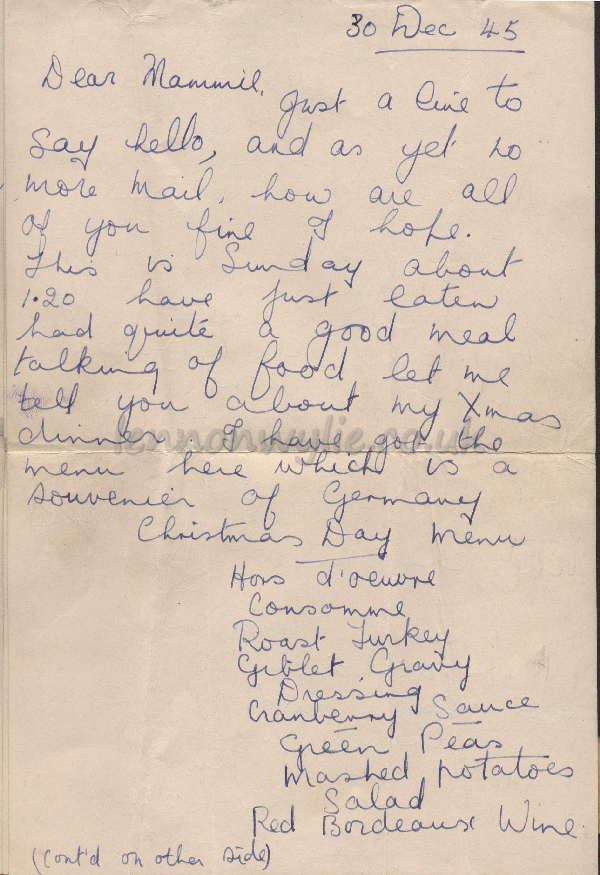 30 Dec 45
Dear Mammie,
Just a line to
say hello, and as yet no
more mail, how are all
of you fine I hope.
This is Sunday about
1.20 have just eaten
had quite a good meal
talking of food let me
tell you about my Xmas
dinner. I have got the
menu here which is a
souvenier of Germany
Christmas Day Menu
Hors d'oeuvre
Consomme
Roast Turkey
Giblet Gravy
Dressing
Cranberry Sauce
Green Peas
Mashed potatoes
Salad
Red Bordeaux Wine.
(Cont'd on other side)
lennonwylie.co.uk